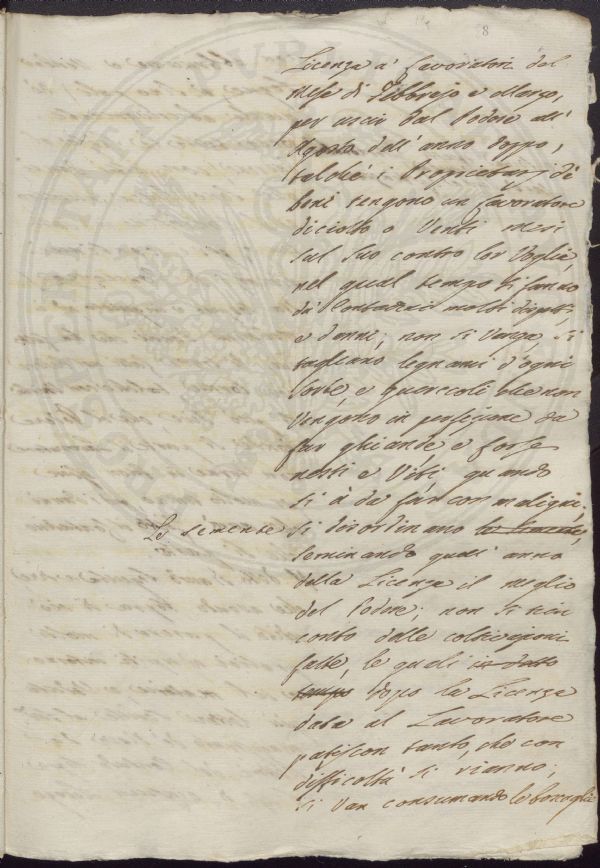 8
Licenza a' Lavoratori del
Mese di Febbrajo e Marzo,
per uscir dal Podere all'
Agosto dell'anno doppo,
talchè i Proprietarj de
beni tengono un Lavoratore
diciotto o Venti mesi
sul suo contro lor Voglia,
nel qual tempo si fanno
da Contadini molti dispetti,
e danni; non si Vanga, si
tagliano legnami d'ogni
sorte, e quercioli che non
Vengono in perfezione da
far ghiande e forse
nesti e Viti, quando
si à da far con maligni.
Le semente si disordinano le semente,
seminando quell'anno
della Licenza il meglio
del Podere; non si tien
conto delle coltivazioni
fatte, le quali in detto
tempo dopo la Licenza
data al Lavoratore
patiscon tanto, che con
difficoltà si rianno;
si van consumando le boscaglie